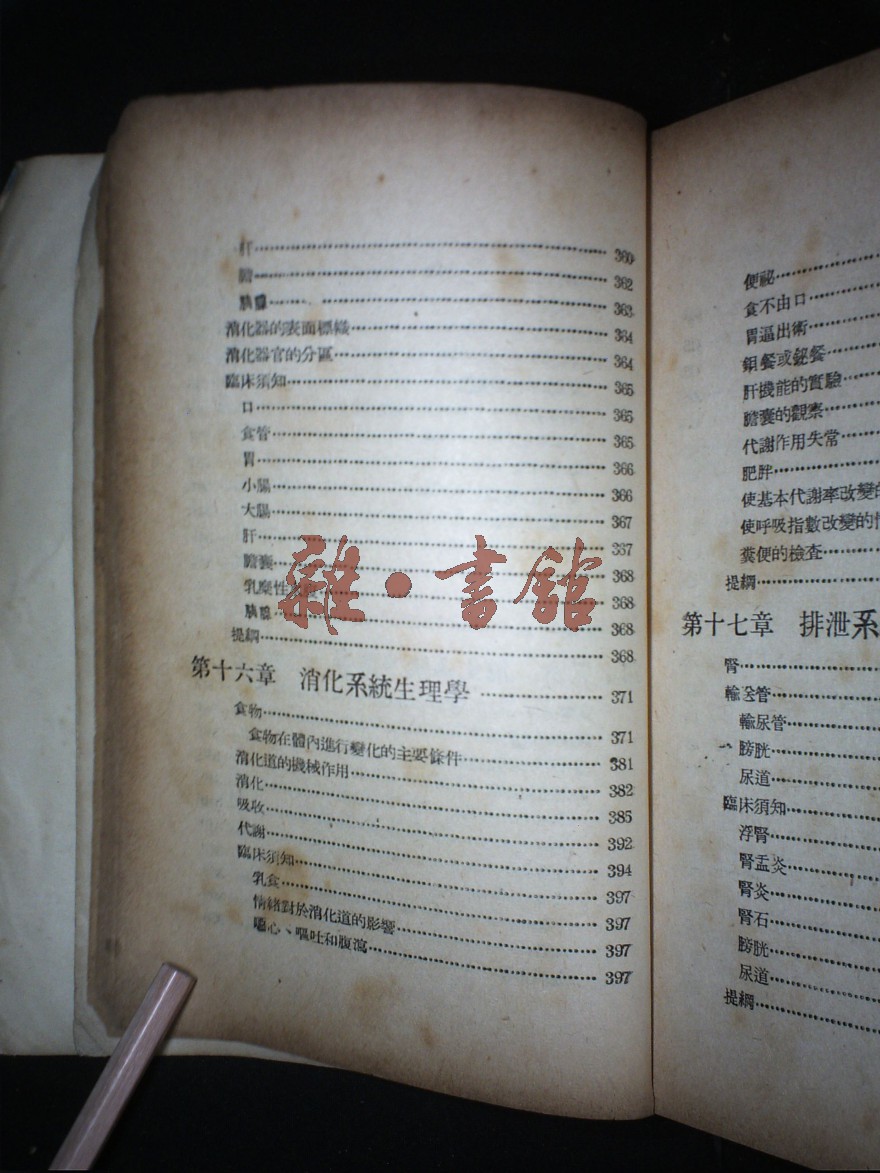 肝 360
膽 362
胰腺 363
消化器的表面標幟 364
消化器官的分區 364
臨床須知 365
口 365
食管 365
胃 366
小腸 366
大腸 367
肝 367
膽囊 368
乳糜性 368
胰腺 368
提綱 368
第十六章 消化系統生理學 371
食物 371
食物在體內進行變化的主要條件 381
消化道的機械作用 382
消化 385
吸收 392
代謝 394
臨床須知 397
乳食 397
情緒對於消化道的影響 397
噁心、嘔吐和腹瀉 397
雜·書館
便祕
食不由口
胃逼出術
鋇餐或鉍餐
肝機能的實驗
膽囊的觀察
代謝作用失常
肥胖
使基本代謝率改變的
使呼吸指數改變的情
糞便的檢查
提綱
第十七章 排泄系
腎
輸送管
輸尿管
膀胱
尿道
臨床須知
浮腎
腎盂炎
腎炎
腎石
膀胱
尿道
提綱